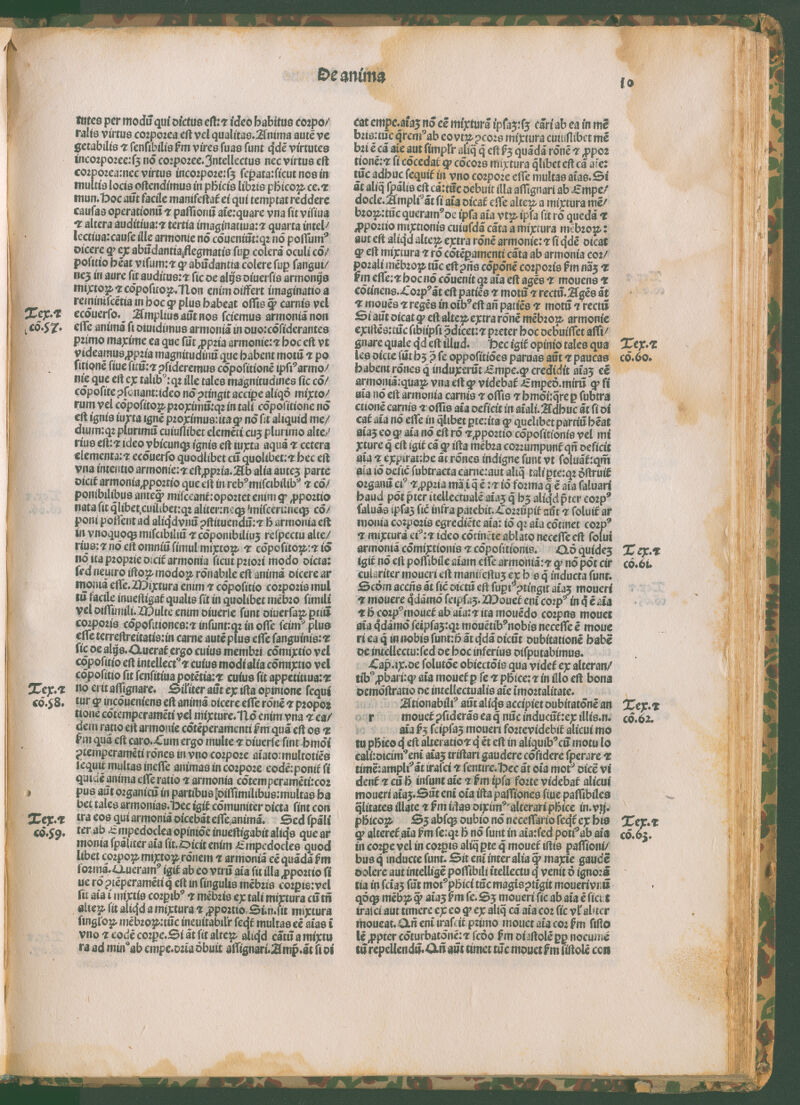 De anima
10
tutes per modū qui dictus est: ⁊ ideo habitus corpo/
ralis virtus corporea est vel qualitas. Anima autē ve
getabilis ⁊ sensibilis ẜm vires suas sunt qdē virtutes
incorporee: sꝫ nō corporee. Intellectus nec virtus est
corporea: nec virtus incorporee: sꝫ sepata: sicut nos in
multis locis ostendimus in phicis libris phicoꝝ ce. ⁊
mun. Hoc aūt facile manifestat̄ ei qui temptat reddere
causas operationū ⁊ passionū aīe: quare vna sit visiua
⁊ altera auditiua: ⁊ tertia imaginatiua: ⁊ quarta intel/
lectiua: cause ille armonie nō cōueniūt: qꝛ nō possumꝰ
dicere ꝙ ex abūdantia flegmatis sup colerā oculi cō/
positio hēat visum: ⁊ ꝙ abūdantia colere sup sangui/
neꝫ in aure sit auditus: ⁊ sic de alijs diuersis armonijs
mixtoꝝ ⁊ cōpositoꝝ. Non enim differt imaginatio a
reminiscētia in hoc ꝙ plus habeat ossis ꝙ̄ carnis vel
ecōuerso. Amplius aūt nos sciemus armoniā non
esse animā si diuidimus armoniā in duo: cōsiderantes
primo maxime ea que sūt ꝓpria armonie: ⁊ hoc est vt
videamus ꝓpria magnitudinū que habent motū ⁊ po
sitionē siue sitū: ⁊ ꝯsideremus cōpositionē ipsiꝰ armo/
nie que est ex talibꝰ: qꝛ ille tales magnitudines sic cō/
posite ꝯsonant: ideo nō ꝯtingit accipe aliqd mixto/
rum vel cōpositoꝝ proximū: qꝛ in tali cōpositione nō
est ignis iuxta ignē proximus: ita ꝙ nō sit aliquid me/
dium: qꝛ plurimū cuiuslibet elemēti cuꝫ plurimo alte/
rius est: ⁊ ideo vbicunqꝫ ignis est iuxta aquā ⁊ cetera
elementa: ⁊ ecōuerso quodlibet cū quolibet: ⁊ hec est
vna intentio armonie: ⁊ est ꝓpria. Ab alia auteꝫ parte
dicit̄ armonia ꝓportio que est in rebꝰ miscibilibꝰ ⁊ cō/
ponibilibus anteꝙ̄ misceant̄: oportet enim ꝙ ꝓportio
nata sit qlibet cuilibet: qꝛ aliter: neqꝫ misceri: neqꝫ cō/
poni possent ad aliqd vnū ꝯstituendū: ⁊ h̄ armonia est
in vnoquoqꝫ miscibiliū ⁊ cōponibiliuꝫ respectu alte/
rius: ⁊ nō est omniū simul mixtoꝝ ⁊ cōpositoꝝ: ⁊ iō
nō ita proprie dicit̄ armonia sicut priori modo dicta:
sed neutro istoꝝ modoꝝ rōnabile est animā dicere ar
moniā esse. Mixtura enim ⁊ cōpositio corporis mul
tū facile inuestigat̄ qualis sit in quolibet mēbro simili
vel dissimili. Multe enim diuerse sunt diuersaꝝ ptiū
corporis cōpositiones: ⁊ insunt: qꝛ in osse scimꝰ plus
esse terrestreitatis: in carne autē plus esse sanguinis: ⁊
sic de alijs. Querat̄ ergo cuius membri cōmixtio vel
cōpositio est intellectꝰ ⁊ cuius modi alia cōmixtio vel
cōpositio sit sensitiua potētia: ⁊ cuius sit appetitiua: ⁊
no erit assignare. Siliter aūt ex ista opinione sequi
tur ꝙ incōueniens est animā dicere esse rōnē ⁊ propor
tionē cōtemperamēti vel mixture. Nō enim vna ⁊ ea/
dem ratio est armonie cōtēperamenti ẜm quā est os ⁊
ẜm quā est caro. Cum ergo multe ⁊ diuerse sint hmōi
ꝯtemperamēti rōnes in vno corpore aīato: multotiēs
sequit̄ multas inesse animas in corpore eodē: ponit̄ si
quidē anima esse ratio ⁊ armonia cōtemperamēti: cor
pus aūt organicū in partibus dissimilibus: multas ha
bet tales armonias. Hec igit̄ cōmuniter dicta sint con
tra eos qui armoniā dicebāt esse animā. Sed spāli
ter ab Empedoclea opiniōe inuestigabit aliqs que ar
monia spāliter aīa sit. Dicit enim Empedocles quod
libet corpoꝝ mixtoꝝ rōnem ⁊ armoniā eē quādā ẜm
formā. Queramꝰ igit̄ ab eo vtrū aīa sit illa ꝓportio si
ue rō ꝯtēperamēti ꝙ est in singulis mēbris corpis: vel
sit aīa ī mixtis corpibꝰ ⁊ mēbris ex tali mixtura cū tn̄
alteꝝ sit aliqd a mixtura ⁊ ꝓportio. Si. n. sit mixtura
singloꝝ mēbroꝝ: tūc ineuitabilr̄ seqt̄ multas eē aīas ī
vno ⁊ eodē corpe. Si āt sit alteꝝ aliqd cātū a mixtu
ra ad minꝰ ab empe. dīa dbuit assignari. Amp. āt si di
cat empe. aīaꝫ nō eē mixturā ipsaꝫ: sꝫ cāri ab ea in mē
bris: tūc qremꝰ ab eo vtꝝ ꝯcors mixtura cuiuslibet mē
bri ē cā aīe aut simplr̄ aliq q est ẜꝫ quādā rōnē ⁊ ꝓpor
tionē: ⁊ si cōcedat̄ ꝙ cōcors mixtura qlibet est cā aīe:
tūc adhuc sequit̄ in vno corpore esse multas aīas. Si
āt aliq spālis est cā: tūc debuit illa assignari ab Empe/
docle. Ampliꝰ āt si aīa dicat̄ esse alteꝝ a mixtura mē/
broꝝ: tūc queramꝰ de ipsa aīa vtꝝ ipsa sit rō quedā ⁊
ꝓportio mixtionis cuiusdā cāta a mixtura mēbroꝝ:
aut est aliqd alteꝝ extra rōnē armonie: ⁊ si qdē dicat
ꝙ est mixtura ⁊ rō cōtēpamenti cāta ab armonia cor/
porali mēbroꝝ tūc est pn̄s cōpōnē corporis ẜm nāꝫ ⁊
ẜm esse: ⁊ hoc nō cōuenit qꝛ aīa est agēs ⁊ mouens ⁊
cōtinens. Corpꝰ āt est patiēs ⁊ motū ⁊ rectū. Agēs āt
⁊ mouēs ⁊ regēs in oībꝰ est an̄ patiēs ⁊ motū ⁊ rectū
Si aūt dicat ꝙ est alteꝝ extra rōnē mēbroꝝ armonie
existēs: tūc sibiipsi ꝯdicet: ⁊ preter hoc debuisset assi/
gnare quale qd est illud. Hec igit̄ opinio tales qua
les dicte sūt hꝫ ꝓ se oppositiōes paruas aūt ⁊ paucas
habent rōnes q induxerūt Empe. ꝙ credidit aīaꝫ eē
armoniā: quaꝝ vna est ꝙ videbat̄ Empedo. mirū ꝙ si
aīa nō est armonia carnis ⁊ ossis ⁊ hmōi: qre p subtra
ctionē carnis ⁊ ossis aīa deficit in aīali. Adhuc āt si di
cat aīa nō esse in qlibet pte: ita ꝙ quelibet partiū hēat
aīaꝫ eo ꝙ aīa nō est rō ⁊ ꝓportio cōpositionis vel mi
xture q est igit̄ cā ꝙ ista mēbra corrumpunt̄ qn̄ deficit
aīa ⁊ expirat: he āt rōnes indigne sunt vt soluāt̄: qm̄
aīa iō deficē subtracta carne: aut aliq tali pte: qꝛ dstruit̄
organū eiꝰ ⁊ ꝓpria mā ī q ē: ⁊ iō forma q ē aīa saluari
haud pōt pter itellectualē aīaꝫ q hꝫ aliqd pter corpꝰ
saluās ipsaꝫ sic̄ infra patebit. Corrūpit̄ aūt ⁊ soluit̄ ar
monia corporis egrediēte aīa: iō qꝛ aīa cōtinet corpꝰ
⁊ mixturā eiꝰ: ⁊ ideo cōtinēte ablato necesse est solui
armoniā cōmixtionis ⁊ cōpositionis. Qō quideꝫ
igit̄ nō est possibile aīam esse armoniā: ⁊ ꝙ nō pōt cir
culariter moueri est manifestuꝫ ex his q inducta sunt.
Scdm accn̄s āt sic̄ dictū est supiꝰ ꝯtingit aīaꝫ moueri
⁊ mouere qdāmō seipsaꝫ. Mouet̄ eni corpꝰ in q ē aīa
⁊ h̄ corpꝰ mouet̄ ab aīa: ⁊ ita mouēdo corpus mouet
aīa qdāmō seipsaꝫ: qꝛ mouētibꝰ nobis necesse ē moue
ri ea q in nobis sunt: h̄ āt qdā dicūt dubitationē habē
de intellectu: sed de hoc inferius disputabimus.
Cap. ix. de solutōe obiectōis qua videt̄ ex alteran/
tibꝰ ꝓbari: ꝙ aīa mouet̄ p se ⁊ phice: ⁊ in illo est bona
demōstratio de intellectualis aīe īmortalitate.
r
Ationabiliꝰ aūt aliqs accipiet dubitatōnē an
mouet̄ ꝯsiderās ea q nūc inducūt: ex illis. n.
aīa ẜꝫ seipsaꝫ moueri forte videbit̄ alicui mo
tu phico q est alteratio ⁊ q ēt est in aliquibꝰ cū motu lo
cali: dicimꝰ eni aīaꝫ tristari gaudere cōfidere sperare ⁊
timē: ampliꝰ āt irasci ⁊ sentire. Hec āt oīa motꝰ dicē vi
dent̄ ⁊ cū h̄ insunt aīe ⁊ ẜm ipsa forte videbat̄ alicui
moueri aīaꝫ. Sūt eni oīa ista passiones siue passibiles
qlitates illate ⁊ ẜm istas diximꝰ alterari phice in. vij.
phicoꝝ. Sꝫ absqꝫ dubio nō necessario seqt̄ ex his
ꝙ alteret̄ aīa ẜm se: qꝛ h̄ nō sunt in aīa: sed potiꝰ ab aīa
in corpe vel in corpis aliq pte q mouet̄ istis passioni/
bus q inducte sunt. Sit eni inter alia ꝙ̄ maxie gaudē
dolere aut intelligē possibili itellectu q venit d ignorā
tia in sciaꝫ sūt motꝰ phici tūc magis ꝯtigit mouerivnū
qdqꝫ mēbꝝ ꝙ̄ aīaꝫ ẜm se. Sꝫ moueri sic ab aīa ē sicut
irasci aut timere ex eo ꝙ ex aliq cā aīa cor sic vl̄ aliter
moueat. Qn̄ eni irascit̄ primo mouet aīa cor ẜm sisto
lē ꝓpter cōturbatōnē: ⁊ scdo ẜm diastolē pp nocumē
tū repellendū. Qn̄ aūt timet tūc mouet ẜm sistolē con
Tex. ⁊
cō. 57.
Tex. ⁊
cō. 58.
Tex. ⁊
cō. 59.
Tex. ⁊
cō. 60.
Tex. ⁊
cō. 61.
Tex. ⁊
cō. 62.
Tex. ⁊
cō. 63.